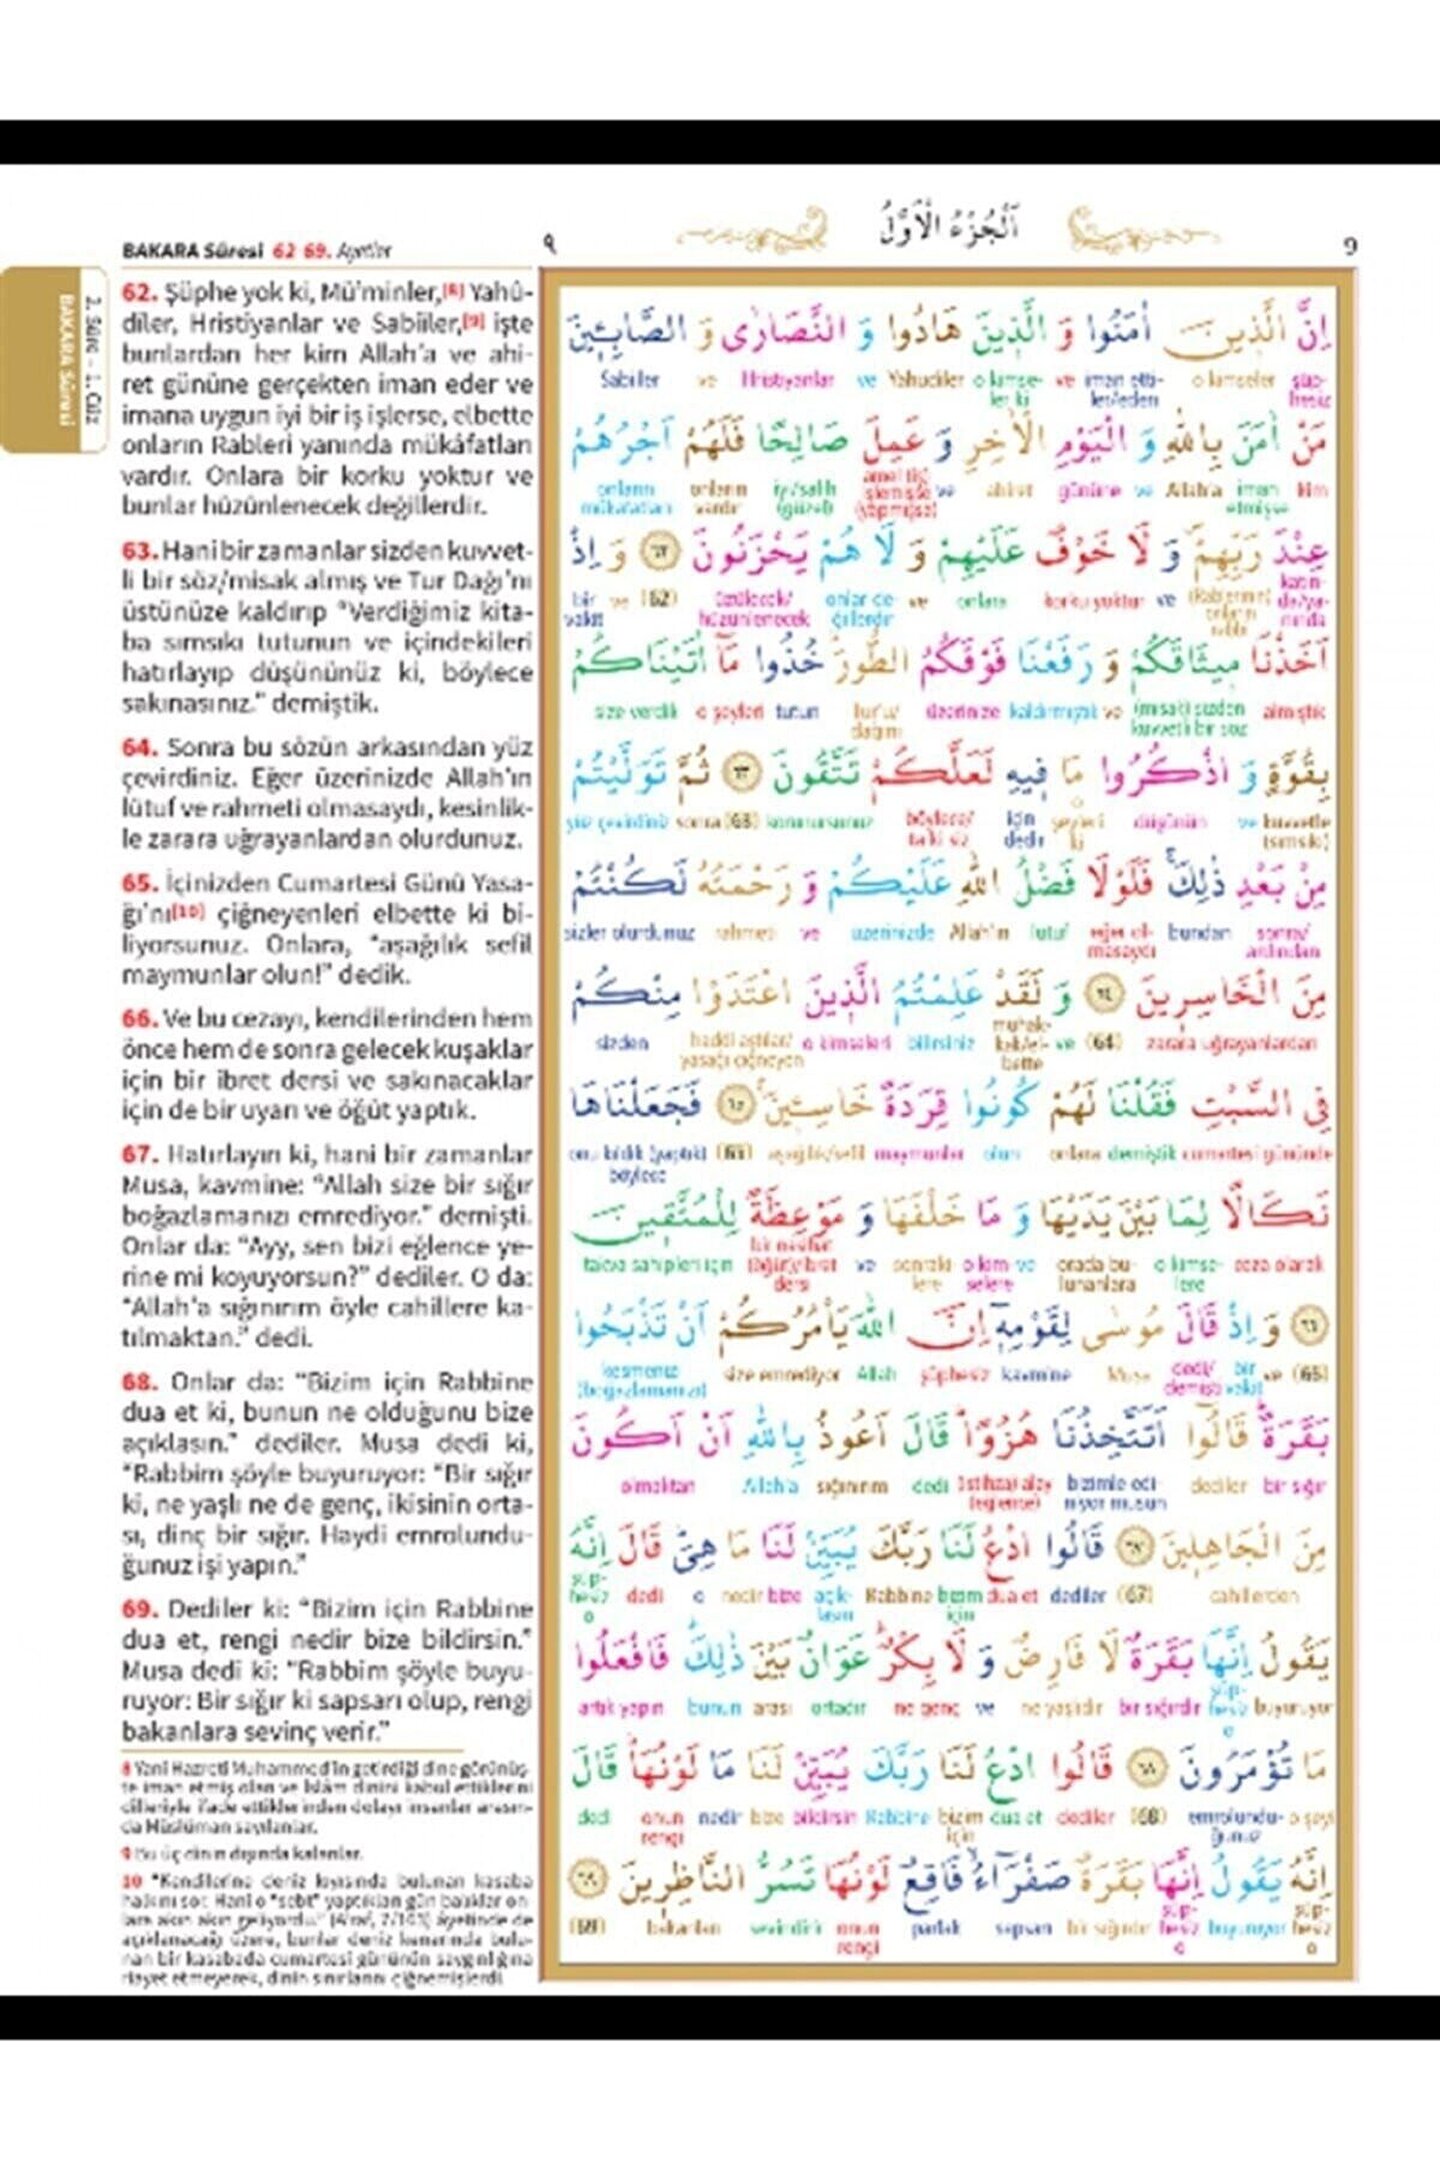 BAKARA Sûresi 62-69. Ayetler
٩
اَلْجُزْءُ الْاَوَّلُ
9
2. Sûre - 1. Cüz
BAKARA Sûresi
62. Şüphe yok ki, Mü'minler,[8] Yahû-
dîler, Hristiyanlar ve Sabiiler,[9] işte
bunlardan her kim Allah'a ve ahi-
ret gününe gerçekten iman eder ve
imana uygun iyi bir iş işlerse, elbette
onların Rableri yanında mükâfatları
vardır. Onlara bir korku yoktur ve
bunlar hüzünlenecek değillerdir.
63. Hani bir zamanlar sizden kuvvet-
li bir söz/misak almış ve Tur Dağı'nı
üstünüze kaldırıp "Verdiğimiz kita-
ba sımsıkı tutunun ve içindekileri
hatırlayıp düşününüz ki, böylece
sakınasınız." demiştik.
64. Sonra bu sözün arkasından yüz
çevirdiniz. Eğer üzerinizde Allah'ın
lütuf ve rahmeti olmasaydı, kesinlik-
le zarara uğrayanlardan olurdunuz.
65. İçinizden Cumartesi Günü Yasa-
ğı'nı[10] çiğneyenleri elbette ki bi-
liyorsunuz. Onlara, "aşağılık sefil
maymunlar olun!" dedik.
66. Ve bu cezayı, kendilerinden hem
önce hem de sonra gelecek kuşaklar
için bir ibret dersi ve sakınacaklar
için de bir uyarı ve öğüt yaptık.
67. Hatırlayın ki, hani bir zamanlar
Musa, kavmine: "Allah size bir sığır
boğazlamanızı emrediyor." demişti.
Onlar da: "Ayy, sen bizi eğlence ye-
rine mi koyuyorsun?" dediler. O da:
"Allah'a sığınırım öyle cahillere ka-
tılmaktan." dedi.
68. Onlar da: "Bizim için Rabbine
dua et ki, bunun ne olduğunu bize
açıklasın." dediler. Musa dedi ki,
"Rabbim şöyle buyuruyor: "Bir sığır
ki, ne yaşlı ne de genç, ikisinin orta-
sı, dinç bir sığır. Haydi emrolundu-
ğunuz işi yapın."
69. Dediler ki: "Bizim için Rabbine
dua et, rengi nedir bize bildirsin."
Musa dedi ki: "Rabbim şöyle buyu-
ruyor: Bir sığır ki sapsarı olup, rengi
bakanlara sevinç verir."
8 Yani Hazreti Muhammed'in getirdiği dine görünüş-
te iman etmiş olan ve İslâm dinini kabul ettiklerini
dilleriyle ifade ettiklerinden dolayı insanlar arasın-
da Müslüman sayılanlar.
9 Bu üç dinin dışında kalanlar.
10 "Kendilerine deniz kıyısında bulunan kasaba
halkını sor. Hani o "sebt" yaptıkları gün balıklar on-
lara akın akın geliyordu." (A'raf, 7/163) âyetinde de
açıklanacağı üzere, bunlar deniz kenarında bulu-
nan bir kasabada cumartesi gününün saygınlığına
riayet etmeyerek, dinin sınırlarını çiğnemişlerdi.
اِنَّ الَّذ۪ينَ اٰمَنُوا وَ الَّذ۪ينَ هَادُوا وَ النَّصَارٰى وَ الصَّابِـ۪ٔينَ
Sabiiler ve Hristiyanlar ve Yahudiler o kimse- ve iman etti- o kimseler şüp-
ler ki ler/eden hesiz
مَنْ اٰمَنَ بِاللّٰهِ وَ الْيَوْمِ الْاٰخِرِ وَ عَمِلَ صَالِحًا فَلَهُمْ اَجْرُهُمْ
onların onların iyi/salih ve ahiret gününe ve Allah'a iman kim
mükafatları vardır (güzel) etmişse
عِنْدَ رَبِّهِمْ وَ لَا خَوْفٌ عَلَيْهِمْ وَ لَا هُمْ يَحْزَنُونَ ﴿٦٢﴾ وَ اِذْ
bir ve (62) üzülecek/ onlar de- ve onlara korku yoktur ve
vakit hüzünlenecek ğillerdir
اَخَذْنَا م۪يثَاقَكُمْ وَ رَفَعْنَا فَوْقَكُمُ الطُّورَ خُذُوا مَٓا اٰتَيْنَاكُمْ
size verdik o şeyleri tutun Tur'u/ üzerinize kaldırmıştık ve (misak) sizden almıştık
dağını kuvvetli bir söz
بِقُوَّةٍ وَ اذْكُرُوا مَا ف۪يهِ لَعَلَّكُمْ تَتَّقُونَ ﴿٦٣﴾ ثُمَّ تَوَلَّيْتُمْ
yüz çevirdiniz sonra (63) korunursunuz böylece/ için şeyleri düşünün ve kuvvetle
dedir ki (sımsıkı)
مِنْ بَعْدِ ذٰلِكَۚ فَلَوْلَا فَضْلُ اللّٰهِ عَلَيْكُمْ وَ رَحْمَتُهُ لَكُنْتُمْ
sizler olurdunuz rahmeti ve üzerinizde Allah'ın lütuf eğer ol- bundan sonra/
masaydı ardından
مِنَ الْخَاسِر۪ينَ ﴿٦٤﴾ وَ لَقَدْ عَلِمْتُمُ الَّذ۪ينَ اعْتَدَوْا مِنْكُمْ
sizden haddi aştılar/ o kimseleri bilirsiniz muhak- ve (64) zarara uğrayanlardan
yasağı çiğneyen kak/el-
bette
فِي السَّبْتِ فَقُلْنَا لَهُمْ كُونُوا قِرَدَةً خَاسِـ۪ٔينَۚ ﴿٦٥﴾ فَجَعَلْنَاهَا
onu kıldık (yaptık) (65) aşağılık/sefil maymunlar olun onlara demiştik cumartesi gününde
böylece
نَكَالًا لِمَا بَيْنَ يَدَيْهَا وَ مَا خَلْفَهَا وَ مَوْعِظَةً لِلْمُتَّق۪ينَ
takva sahipleri için ve sonraki- o kim- ve orada bu- o kimse- ceza olarak
dersi lere selere lunanlara lere
﴿٦٦﴾ وَ اِذْ قَالَ مُوسٰى لِقَوْمِه۪ٓ اِنَّ اللّٰهَ يَأْمُرُكُمْ اَنْ تَذْبَحُوا
kesmenizi size emrediyor Allah şüphesiz kavmine Musa dedi/ bir ve (66)
(boğazlamanızı) demişti vakit
بَقَرَةًۜ قَالُٓوا اَتَتَّخِذُنَا هُزُوًاۜ قَالَ اَعُوذُ بِاللّٰهِ اَنْ اَكُونَ
olmaktan Allah'a sığınırım dedi (istihza) alay bizimle edi- dediler bir sığır
(eğlence) niyor musun
مِنَ الْجَاهِل۪ينَ ﴿٦٧﴾ قَالُوا ادْعُ لَنَا رَبَّكَ يُبَيِّنْ لَنَا مَا هِيَۜ قَالَ اِنَّهُ
şüp- dedi o nedir bize açık- Rabbine bizim dua et dediler (67) cahillerden
hesiz o lasın için
يَقُولُ اِنَّهَا بَقَرَةٌ لَا فَارِضٌ وَ لَا بِكْرٌۜ عَوَانٌ بَيْنَ ذٰلِكَۜ فَافْعَلُوا
artık yapın bunun arası ortadır ne genç ve ne yaşlıdır bir sığırdır şüp- buyuruyor
hesiz o
مَا تُؤْمَرُونَ ﴿٦٨﴾ قَالُوا ادْعُ لَنَا رَبَّكَ يُبَيِّنْ لَنَا مَا لَوْنُهَاۜ قَالَ
dedi onun nedir bize bildirsin Rabbine bizim dua et dediler (68) emrolundu- o şeyi
rengi için ğunuz
اِنَّهُ يَقُولُ اِنَّهَا بَقَرَةٌ صَفْرَٓاءُۙ فَاقِعٌ لَوْنُهَا تَسُرُّ النَّاظِر۪ينَ ﴿٦٩﴾
(69) bakanları sevindirir onun parlak sapsarı bir sığırdır şüp- buyuruyor şüp-
rengi hesiz o hesiz o